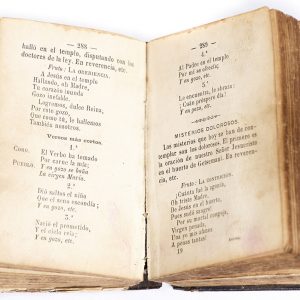 — 288 —
halló en el templo, disputando con los
doctores de la ley. En reverencia, etc.
Fruto: LA OBEDIENCIA.
A Jesús en el templo
Hallando, oh Madre,
Tu corazón inunda
Gozo inefable.
Logremos, dulce Reina,
Por este gozo,
Que como tú, le hallemos
También nosotros.
Versos más cortos.
1.º
CORO. El Verbo ha tomado
Por carne la mía;
PUEBLO. Y en gozo se baña
La virgen María.
2.º
Dió saltos el niño
Que el seno escondía;
Y en gozo, etc.
3.º
Nació el prometido,
Y el cielo ;
Y en gozo, etc.
— 289 —
4.º
Al Padre en el templo
Por mí se ofrecía;
Y en gozo, etc.
5.º
Le encuentra, le abraza:
¡Cuán próspero día!
Y en gozo, etc.
MISTERIOS DOLOROSOS.
Los misterios que hoy se han de con-
templar son los dolorosos. El primero es
la oración de nuestro Señor Jesucristo
en el huerto de Getsemaní. En reveren-
cia, etc.
Fruto: LA CONTRICIÓN.
¡Cuánta fué la agonía,
Oh triste Madre,
De Jesús en el huerto
Pues sudó sangre!
Por su mortal congoja,
Virgen penada,
Una yo mis ansias
A penas tantas!
19